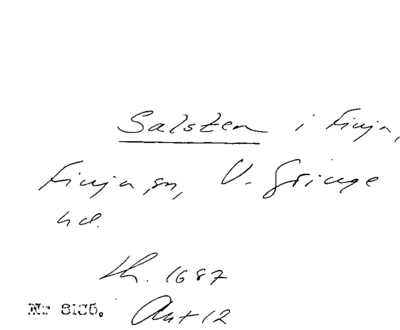 Salsten i Finja,
Finja sn, V. Göinge
hd.
th. 1687
Nr 8186. Ant 12